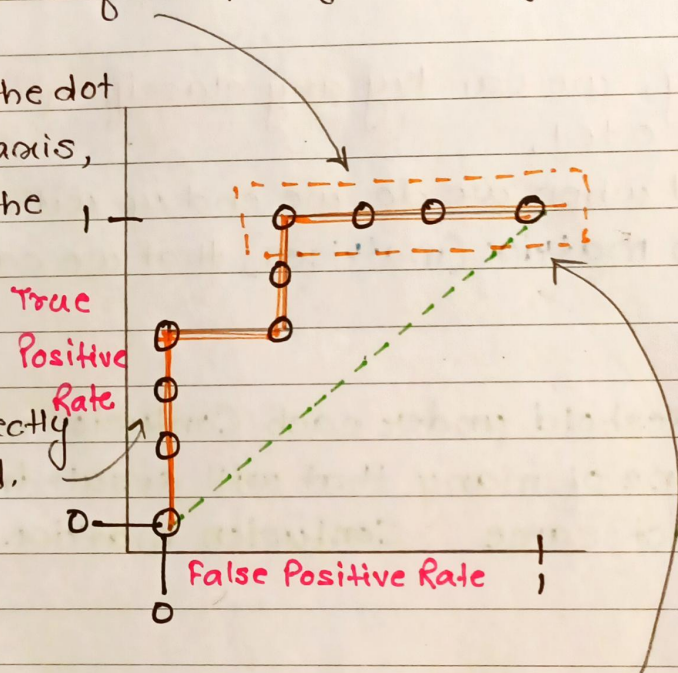 he dot
axis,
he
1
True
Positive
Rate
ectly
0
False Positive Rate
1
0